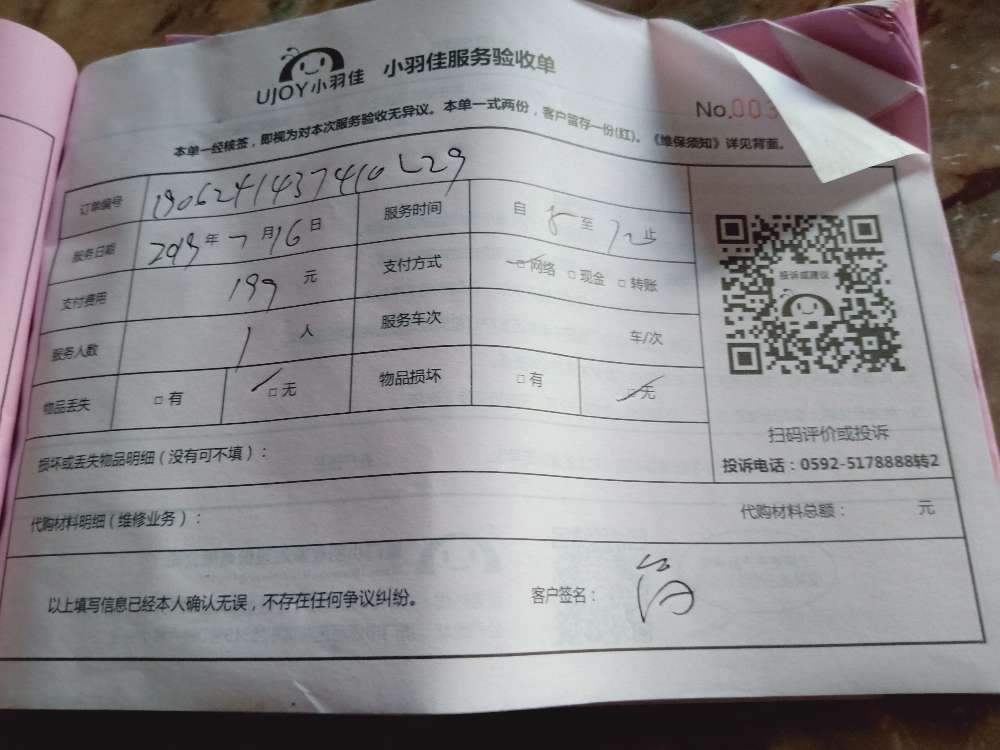 UJOY小羽佳 小羽佳服务验收单
No.003
本单一经核签，即视为对本次服务验收无异议。本单一式两份，客户留存一份(红)。《维保须知》详见背面。
订单编号 1906241437410L29
服务日期 2019年7月16日 服务时间 自 8 至 止
支付费用 199 元 支付方式 □网络 □现金 □转账
服务人数 1 人 服务车次 车/次
物品丢失 □有 □无 物品损坏 □有 □无
投诉或建议
扫码评价或投诉
投诉电话：0592-5178888转2
损坏或丢失物品明细（没有可不填）：
代购材料明细（维修业务）： 代购材料总额： 元
以上填写信息已经本人确认无误，不存在任何争议纠纷。 客户签名：